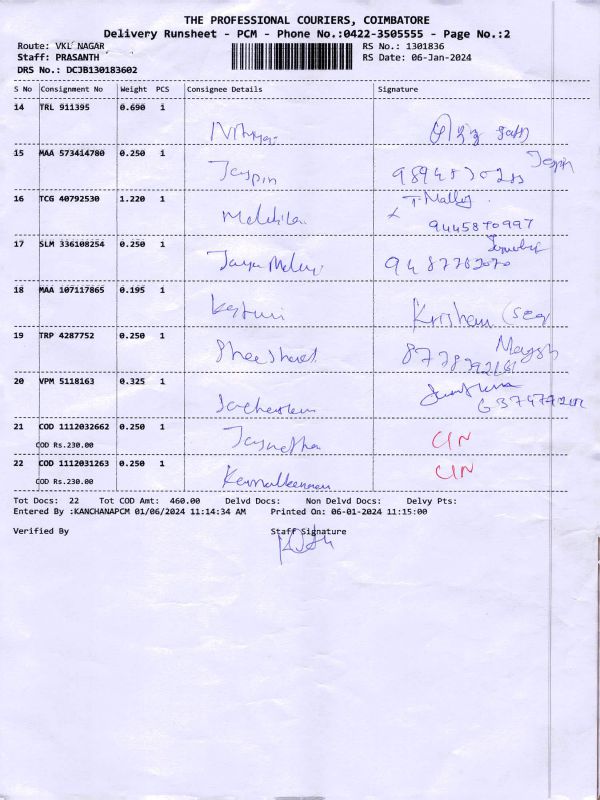 THE PROFESSIONAL COURIERS, COIMBATORE
Delivery Runsheet - PCM - Phone No.:0422-3505555 - Page No.:2
Route: VKL NAGAR
RS No.: 1301836
Staff: PRASANTH
RS Date: 06-Jan-2024
DRS No.: DCJB130183602
S No Consignment No Weight PCS Consignee Details Signature
14 TRL 911395 0.690 1
Nithya
15 MAA 573414780 0.250 1
Jaypin Jaypin
16 TCG 40792530 1.220 1
T. Mally
9445870997
17 SLM 336108254 0.250 1
18 MAA 107117865 0.195 1
Kasturi
19 TRP 4287752 0.250 1
20 VPM 5118163 0.325 1
21 COD 1112032662 0.250 1
CIN
COD Rs.230.00
22 COD 1112031263 0.250 1
CIN
COD Rs.230.00
Tot Docs: 22 Tot COD Amt: 460.00 Delvd Docs: Non Delvd Docs: Delvy Pts:
Entered By :KANCHANAPCM 01/06/2024 11:14:34 AM Printed On: 06-01-2024 11:15:00
Verified By Staff Signature